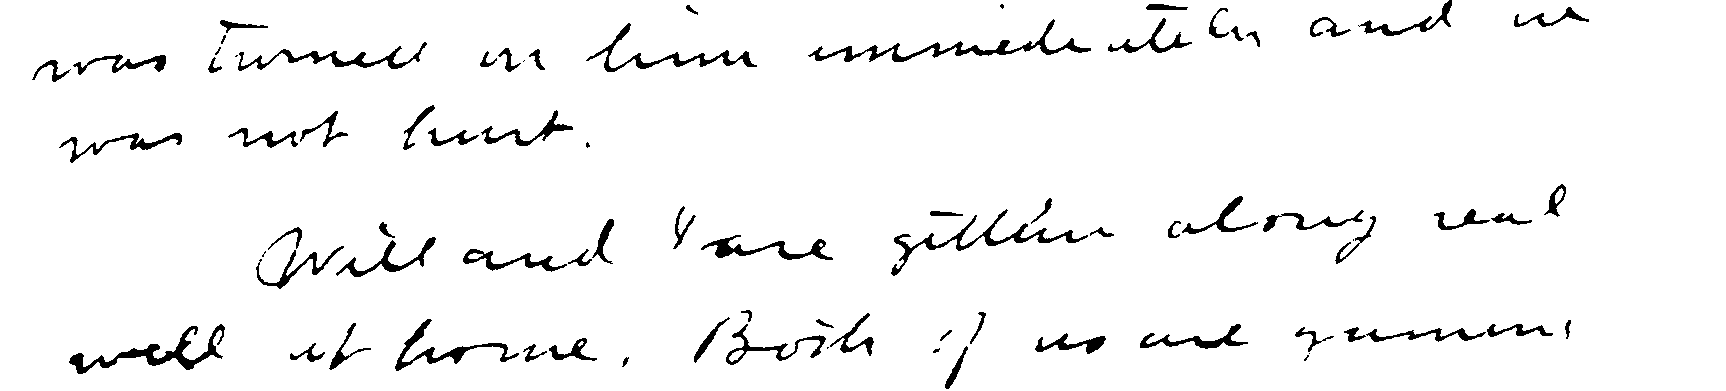 was turned on him immediately and he
was not hurt.
Will and I are gittin along real
well at home. Both of us are